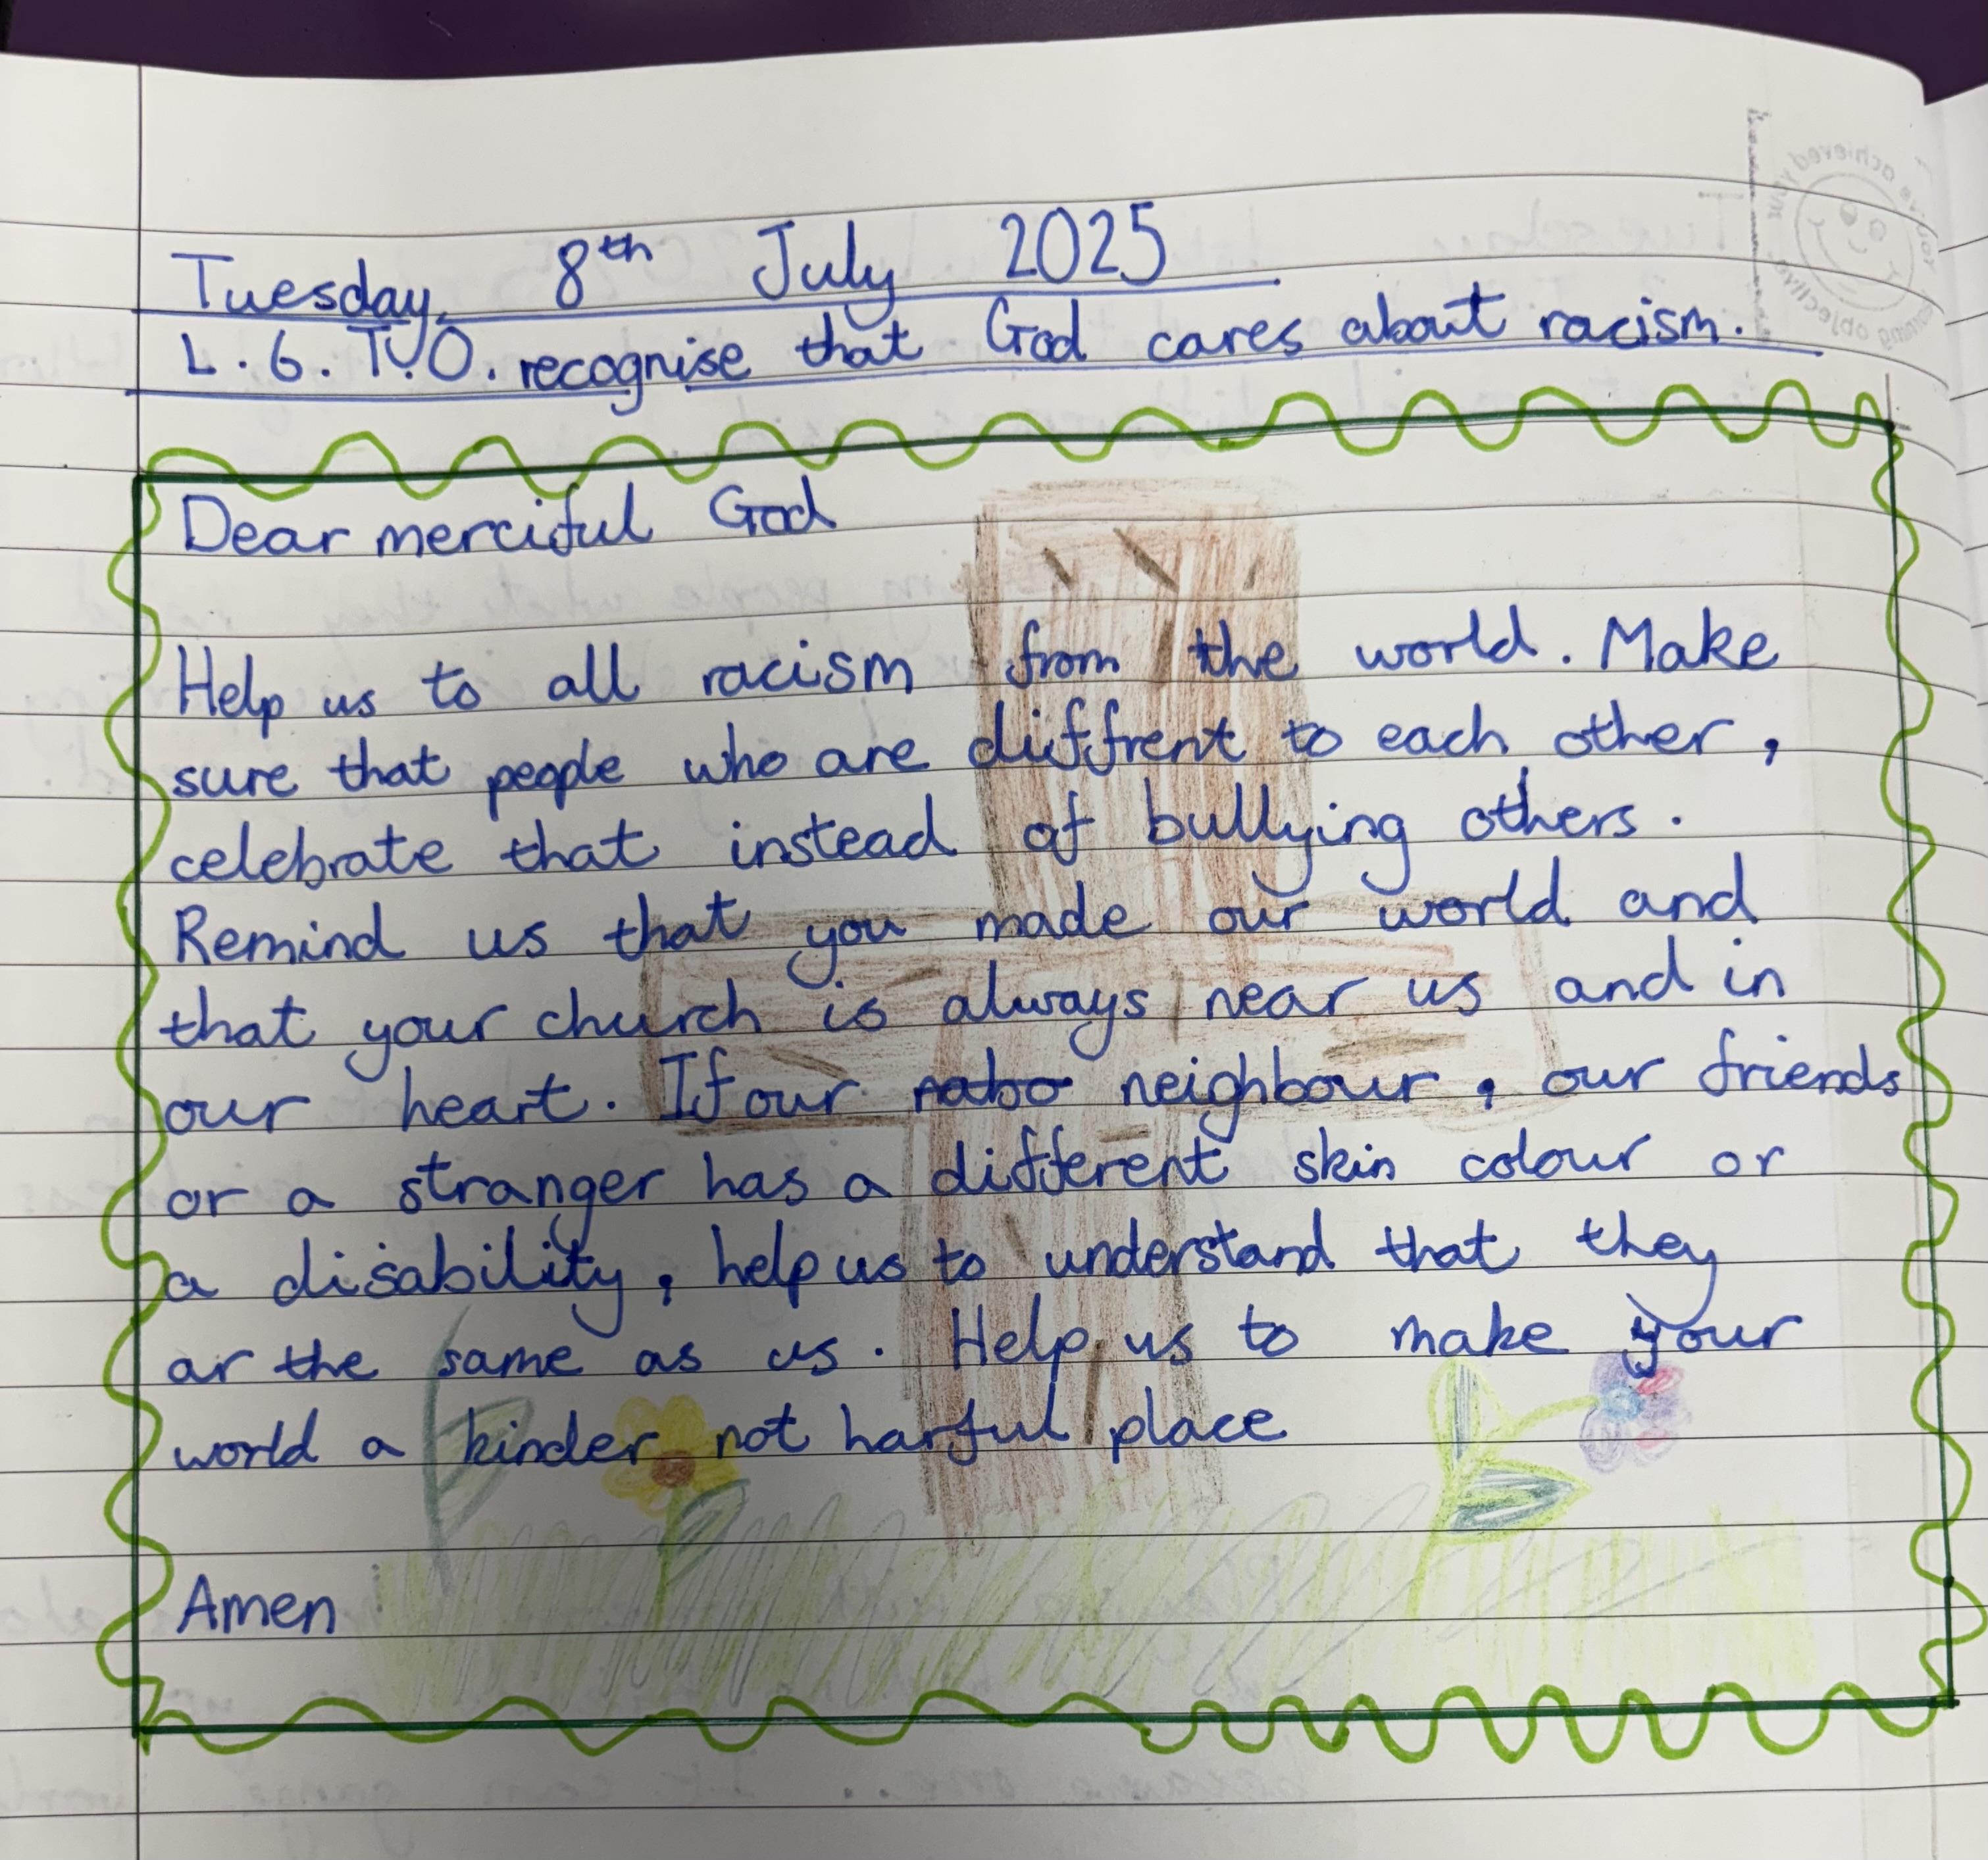 Tuesday, 8th July 2025
L.6. T.O. recognise that God cares about racism.
Dear merciful God
Help us to all racism from the world. Make
sure that people who are diffrent to each other,
celebrate that instead of bullying others.
Remind us that you made our world and
that your church is always near us and in
our heart. If our neighbour, our friends
or a stranger has a different skin colour or
a disability, help us to understand that they
ar the same as us. Help us to make your
world a kinder not harful place
Amen